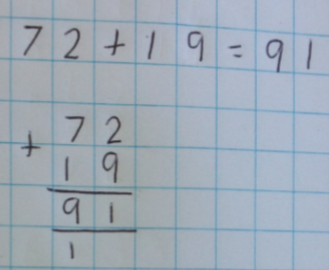 72+19=91
72
+
19
91
1